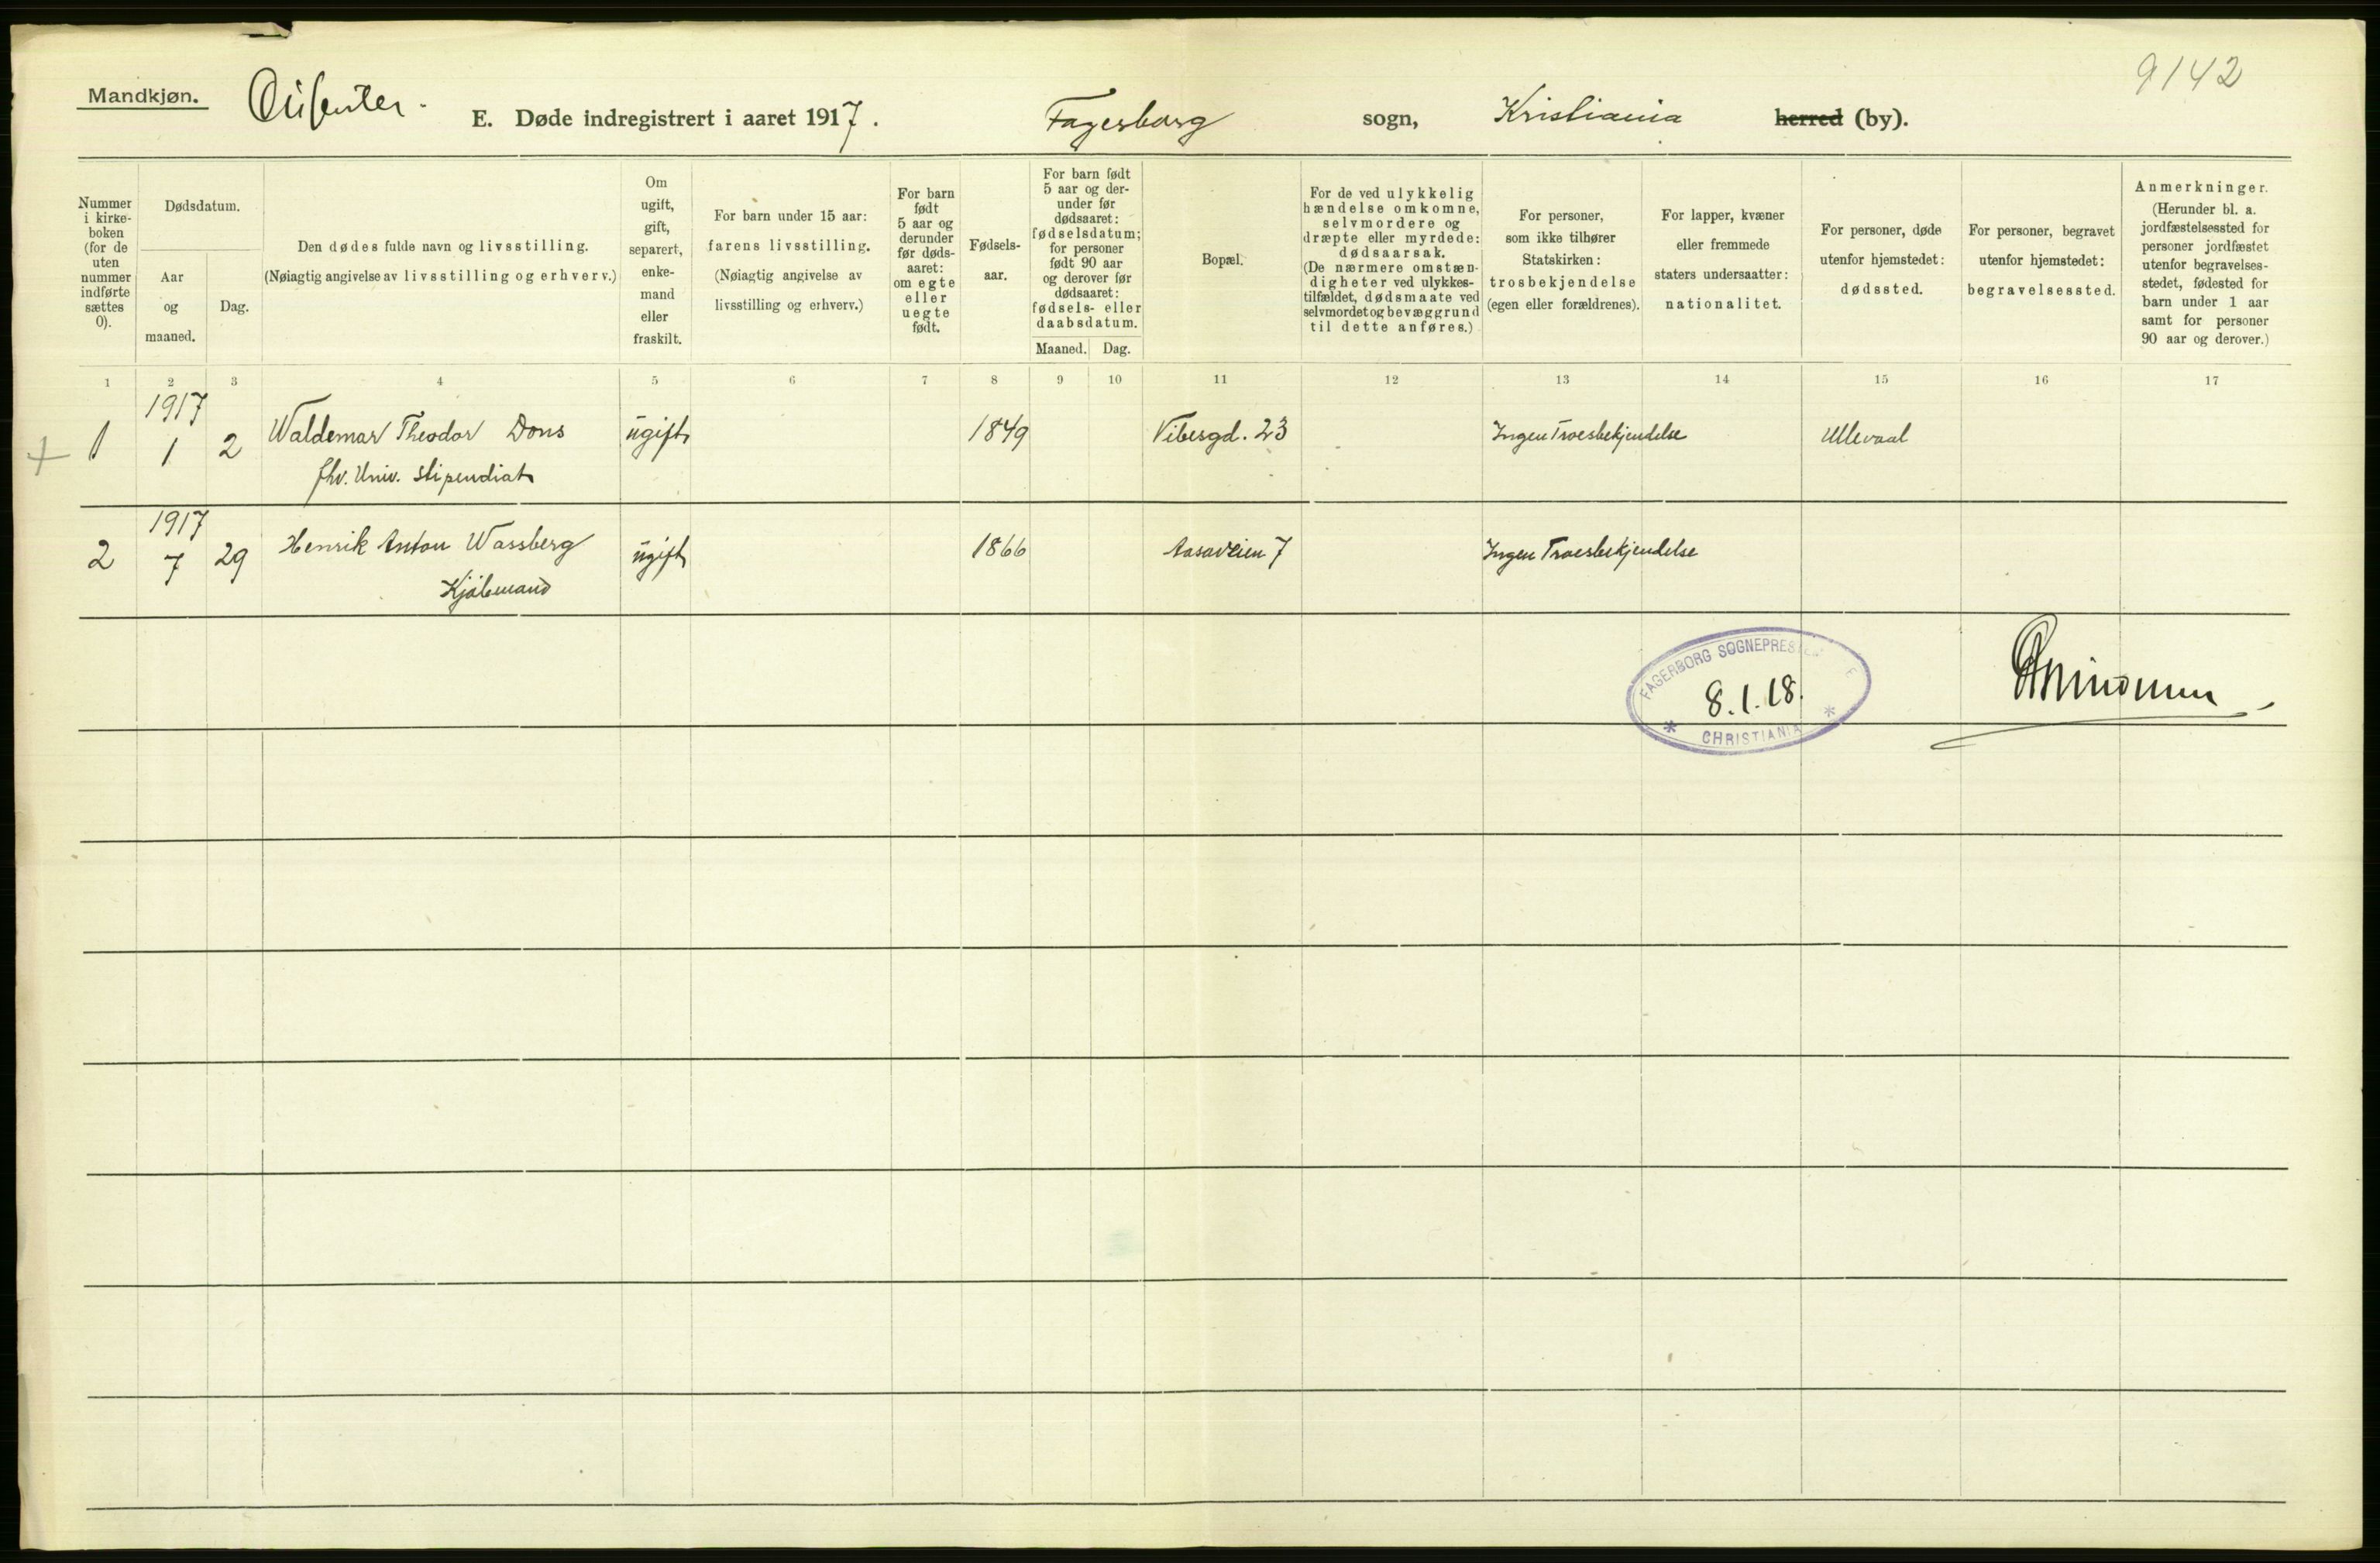 Mandkjøn.
9142
E. Døde indregistrert i aaret 1917. Fagerborg sogn, Kristiania herred (by).
Nummer i kirke-
boken
(for de
uten
nummer
indførte
sættes
0).
Dødsdatum.
Aar
og
maaned.
Dag.
Den dødes fulde navn og livsstilling.
(Nøiagtig angivelse av livsstilling og erhverv.)
Om
ugift,
gift,
separert,
enke-
mand
eller
fraskilt.
For barn under 15 aar:
farens livsstilling.
(Nøiagtig angivelse av
livsstilling og erhverv.)
For barn
født
5 aar og
derunder
før døds-
aaret:
om egte
eller
uegte
født.
Fødsels-
aar.
For barn født
5 aar og der-
under før
dødsaaret:
fødselsdatum;
for personer
født 90 aar
og derover før
dødsaaret:
fødsels- eller
daabsdatum.
Maaned. Dag.
Bopæl.
For de ved ulykkelig
hændelse omkomne,
selvmordere og
dræpte eller myrdede:
dødsaarsak.
(De nærmere omstæn-
digheter ved ulykkes-
tilfældet, dødsmaate ved
selvmordet og bevæggrund
til dette anføres.)
For personer,
som ikke tilhører
Statskirken:
trosbekjendelse
(egen eller forældrenes).
For lapper, kvæner
eller fremmede
staters undersaatter:
nationalitet.
For personer, døde
utenfor hjemstedet:
dødssted.
For personer, begravet
utenfor hjemstedet:
begravelsessted.
Anmerkninger.
(Herunder bl. a.
jordfæstelsessted for
personer jordfæstet
utenfor begravelses-
stedet, fødested for
barn under 1 aar
samt for personer
90 aar og derover.)
1 2 3 4 5 6 7 8 9 10 11 12 13 14 15 16 17
1917
1 1 2 Waldemar Theodor Dons ugift 1849 Vibesgd. 23 Ingen Troesbekjendelse Ullevaal
fhv. Univ. Stipendiat
1917
2 7 29 Henrik Anton Wassberg ugift 1866 Aasaveien 7 Ingen Troesbekjendelse
Kjøbmand
FAGERBORG SOGNEPREST
8.1.18.
* CHRISTIANIA *